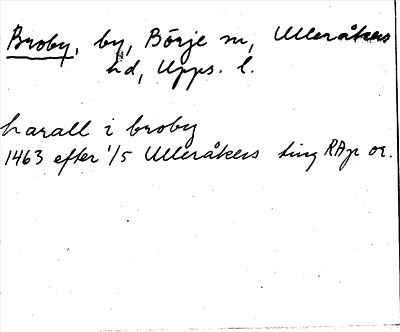 Broby, by, Börje sn, Ulleråkers
hd, Upps. l.
harall i broby
1463 efter 1/5 Ulleråkers ting RAp or.